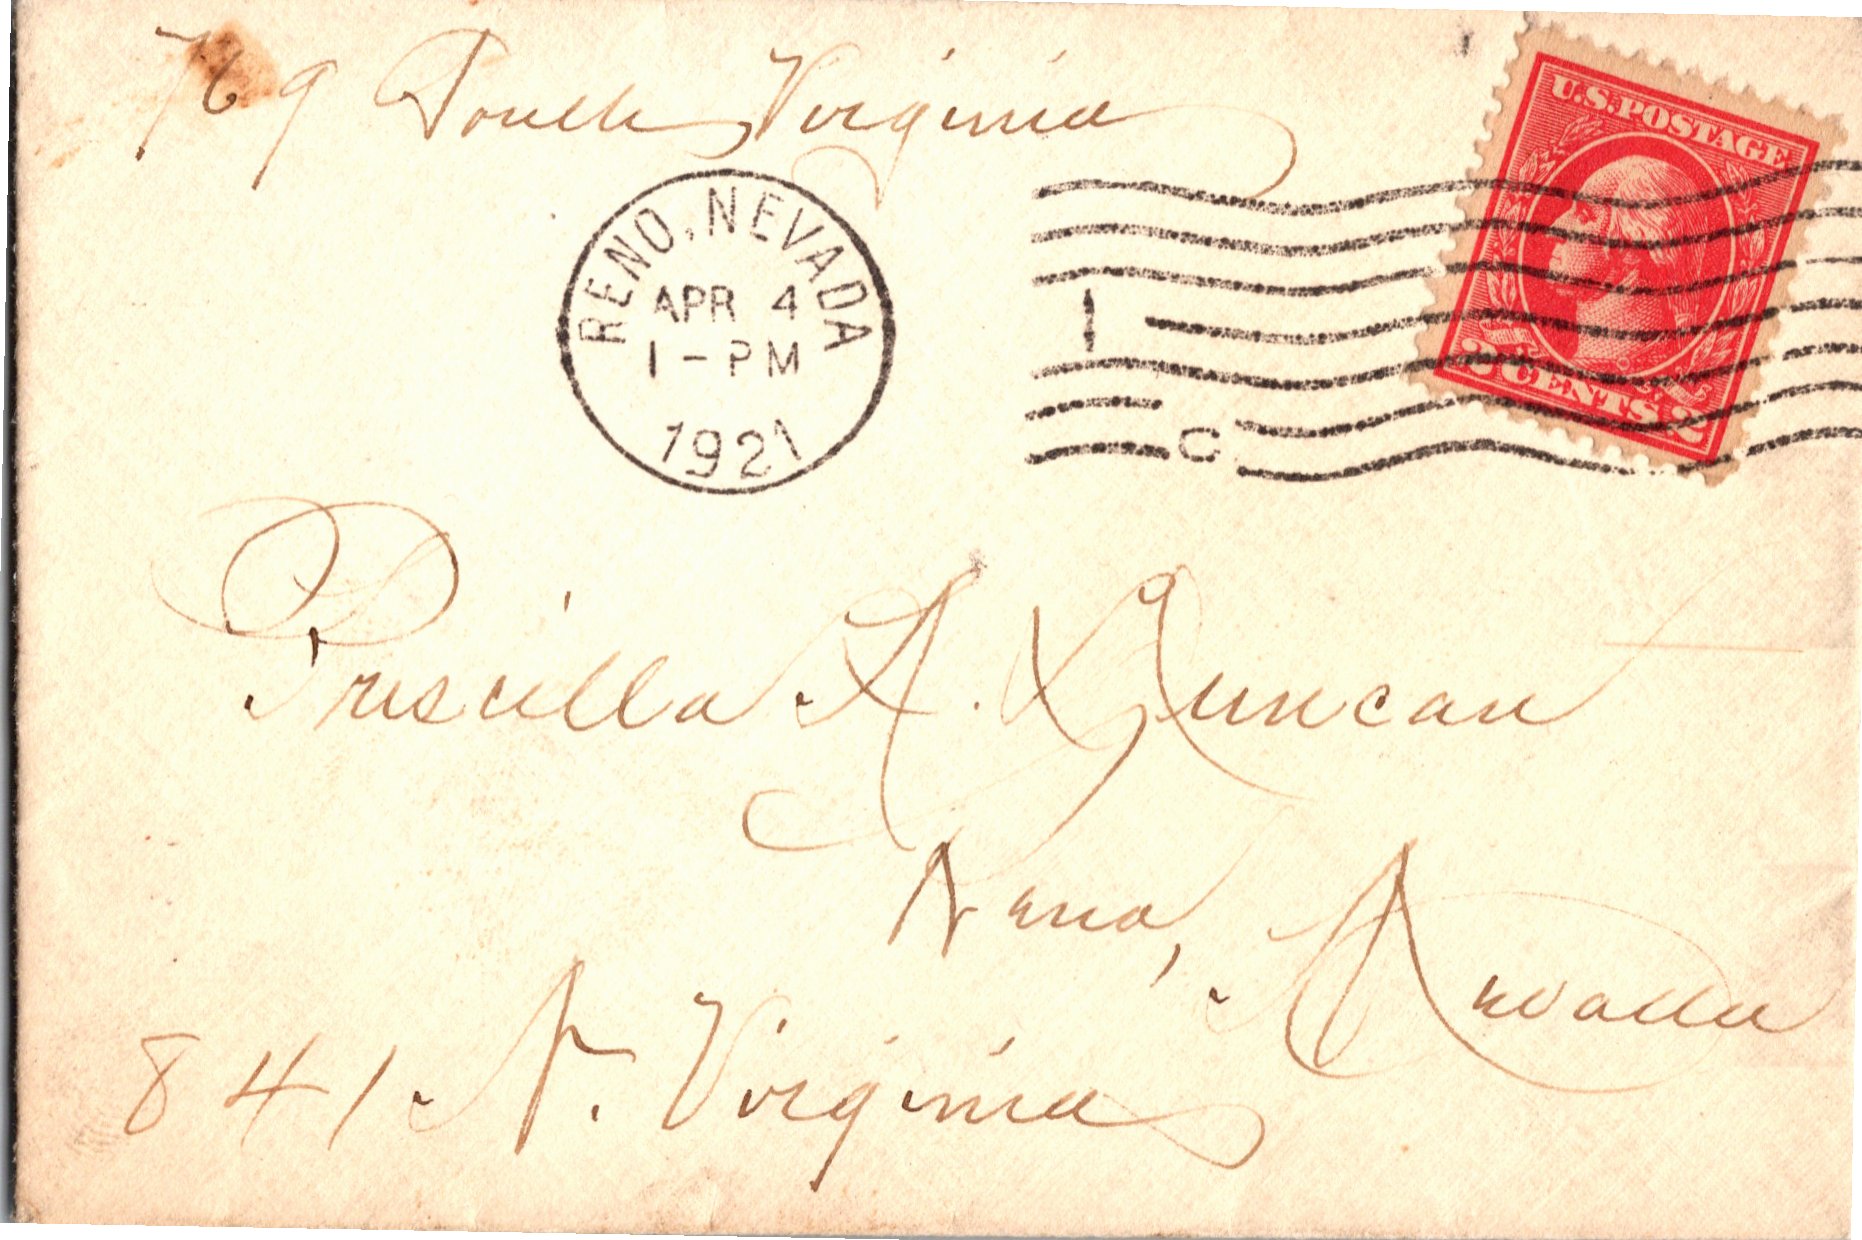 769 South Virginia
U.S. POSTAGE
2 CENTS 2
RENO, NEVADA
APR 4
1-PM
1921
1
C
Priscilla A. Duncan
Reno,
Nevada
841 N. Virginia